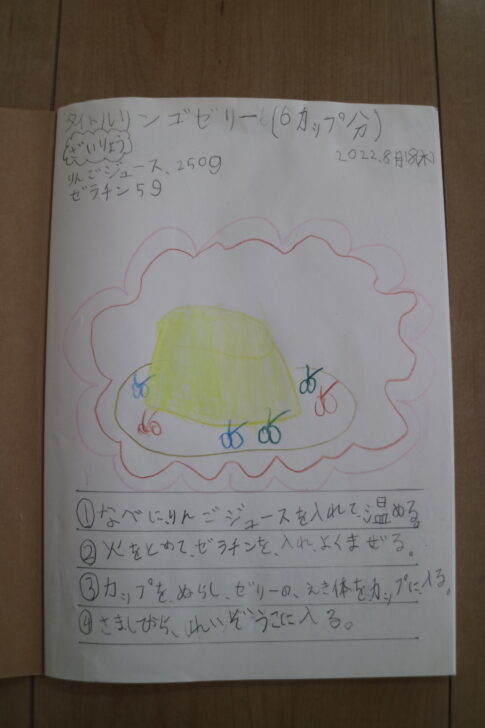 タイトルリンゴゼリー(6カップ分)
ざいりょう
2022.8月18(木)
りんごジュース、250g
ゼラチン5g
①なべに、りんごジュースを入れて、温める。
②火をとめて、ゼラチンを、入れ、よくまぜる。
③カップを、ぬらし、ゼリーの、えき体をカップに、入る。
④さましてから、れいぞうこに入る。